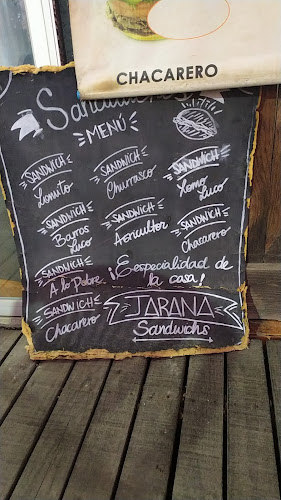 CHACARERO
Sandwich
MENÚ
SANDWICH
Lomito
SANDWICH
Churrasco
SANDWICH
Lomo
Luco
SANDWICH
Barros
Luco
SANDWICH
Agricultor
SANDWICH
Chacarero
SANDWICH
A lo Pobre
SANDWICH
Chacarero
¡Especialidad de
la casa!
JARANA
Sandwichs